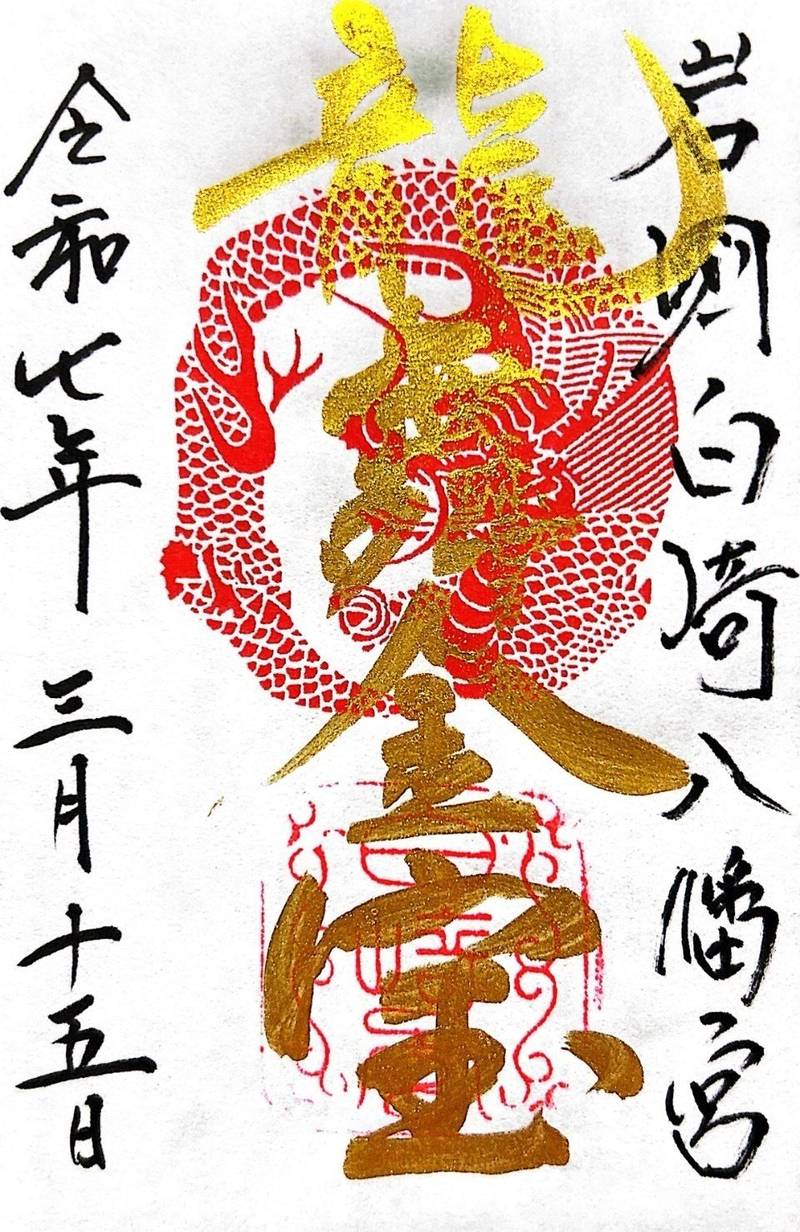 岩國白崎八幡宮
龍 金宝
令和七年 三月十五日